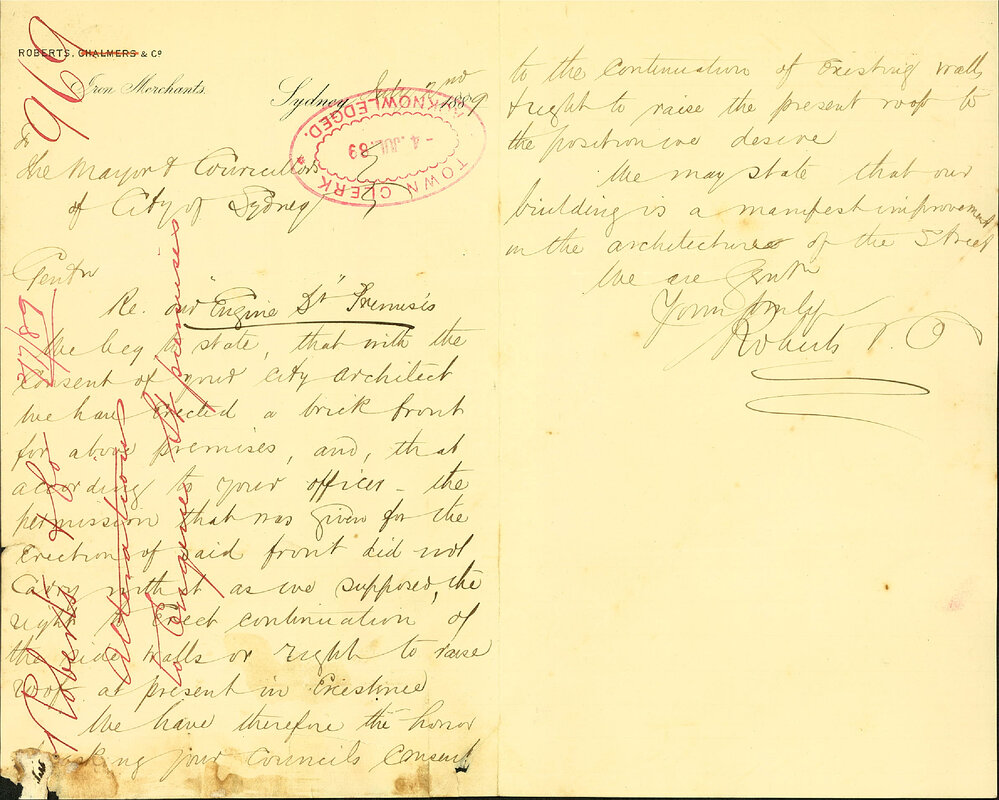 ROBERTS, CHALMERS & Co
Iron Merchants.
Sydney, July 2nd 1889
969
TOWN CLERK
-4. JUL. 89
ACKNOWLEDGED.
To
The Mayor & Councillors
of City of Sydney
Gentn
Re. our "Engine St" Premises
We beg to state, that with the
consent of your City Architect
we have erected a brick front
for above premises, and, that
according to your officer - the
permission that was given for the
erection of said front did not
carry with it as we supposed, the
right to erect continuation of
the side walls or right to raise
roof at present in Existence
We have therefore the honor
asking your Councils consent
to the continuation of existing walls
& right to raise the present roof to
the position we desire
We may state that our
building is a manifest improvement
in the architecture of the Street
We are Gentn
Yours Truly
Roberts & Co
Roberts & Co 3/7/89
Alterations
to Engine St premises